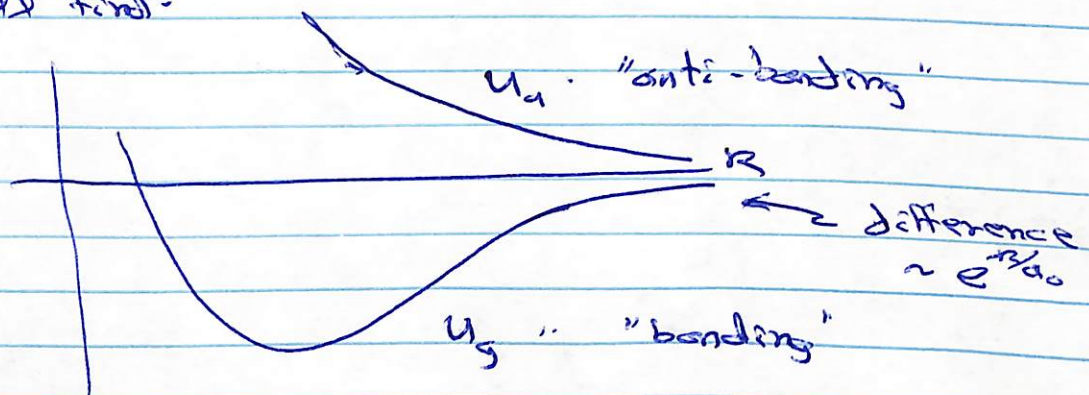 find.
U_u . "anti-bonding"
R
difference
~ e^{-R/a_0}
U_g .. "bonding"